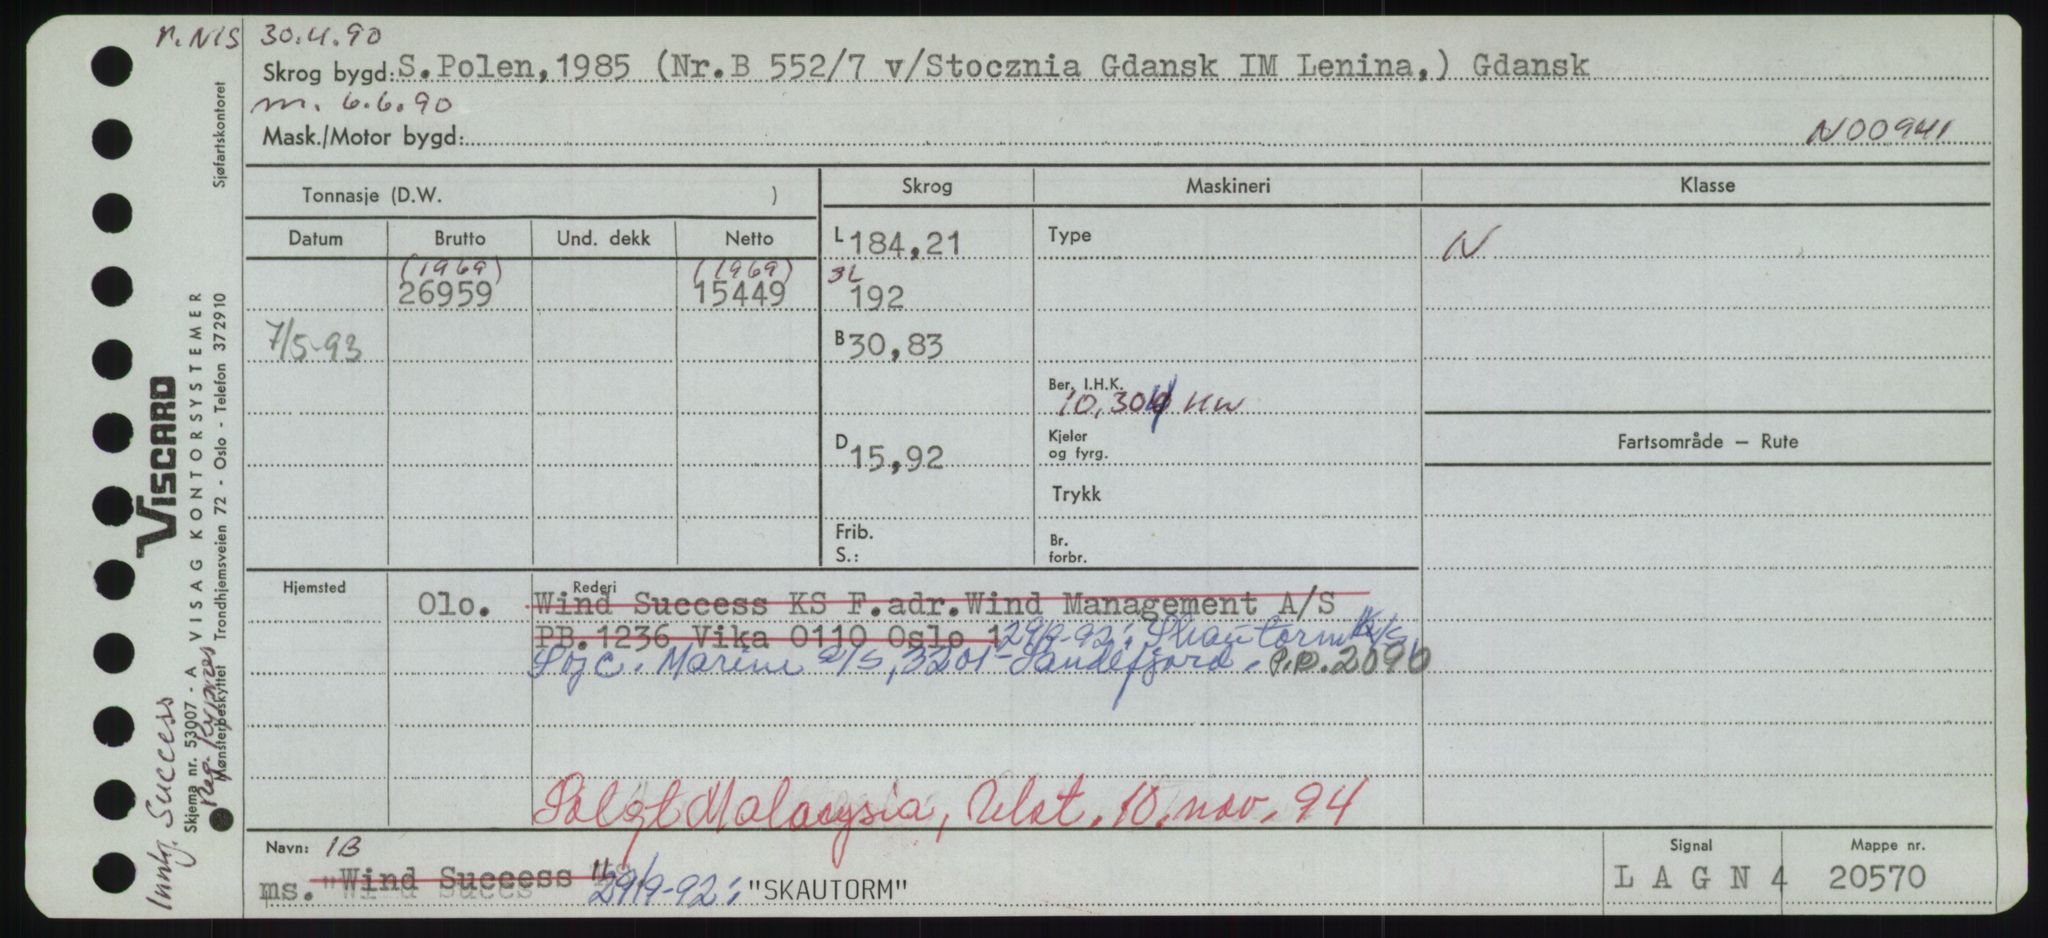 n. NIS 30.4.90
Skrog bygd: S.Polen, 1985 (Nr.B 552/7 v/Stocznia Gdansk IM Lenina,) Gdansk
m. 6.6.90
Mask./Motor bygd:
N00941
Tonnasje (D.W. )
Skrog
Maskineri
Klasse
Datum
Brutto
Und. dekk
Netto
L 184,21
Type
N
(1969)
(1969)
26959
15449
3L
192
7/5-93
B 30,83
Ber. I.H.K.
10,304 KW
Fartsområde — Rute
D 15,92
Kjeler
og fyrg.
Trykk
Frib.
S.:
Br.
forbr.
Hjemsted
Olo.
Rederi
Wind Success KS F.adr.Wind Management A/S
PB.1236 Vika 0110 Oslo 1 29/9-92: Skautorm K/S
Marine a/s, 3201 - Sandefjord. P.R. 2096
Solgt Malaysia, Utst. 10. nov. 94
Navn: 1B
ms. "Wind Success" 29/9-92: "SKAUTORM"
Signal
L A G N 4
Mappe nr.
20570
Sjøfartskontoret
VISCARD
Skjema nr. 53007 - A VISAG KONTORSYSTEMER
Mønsterbeskyttet Trondhjemsveien 72 - Oslo - Telefon 372910
Success